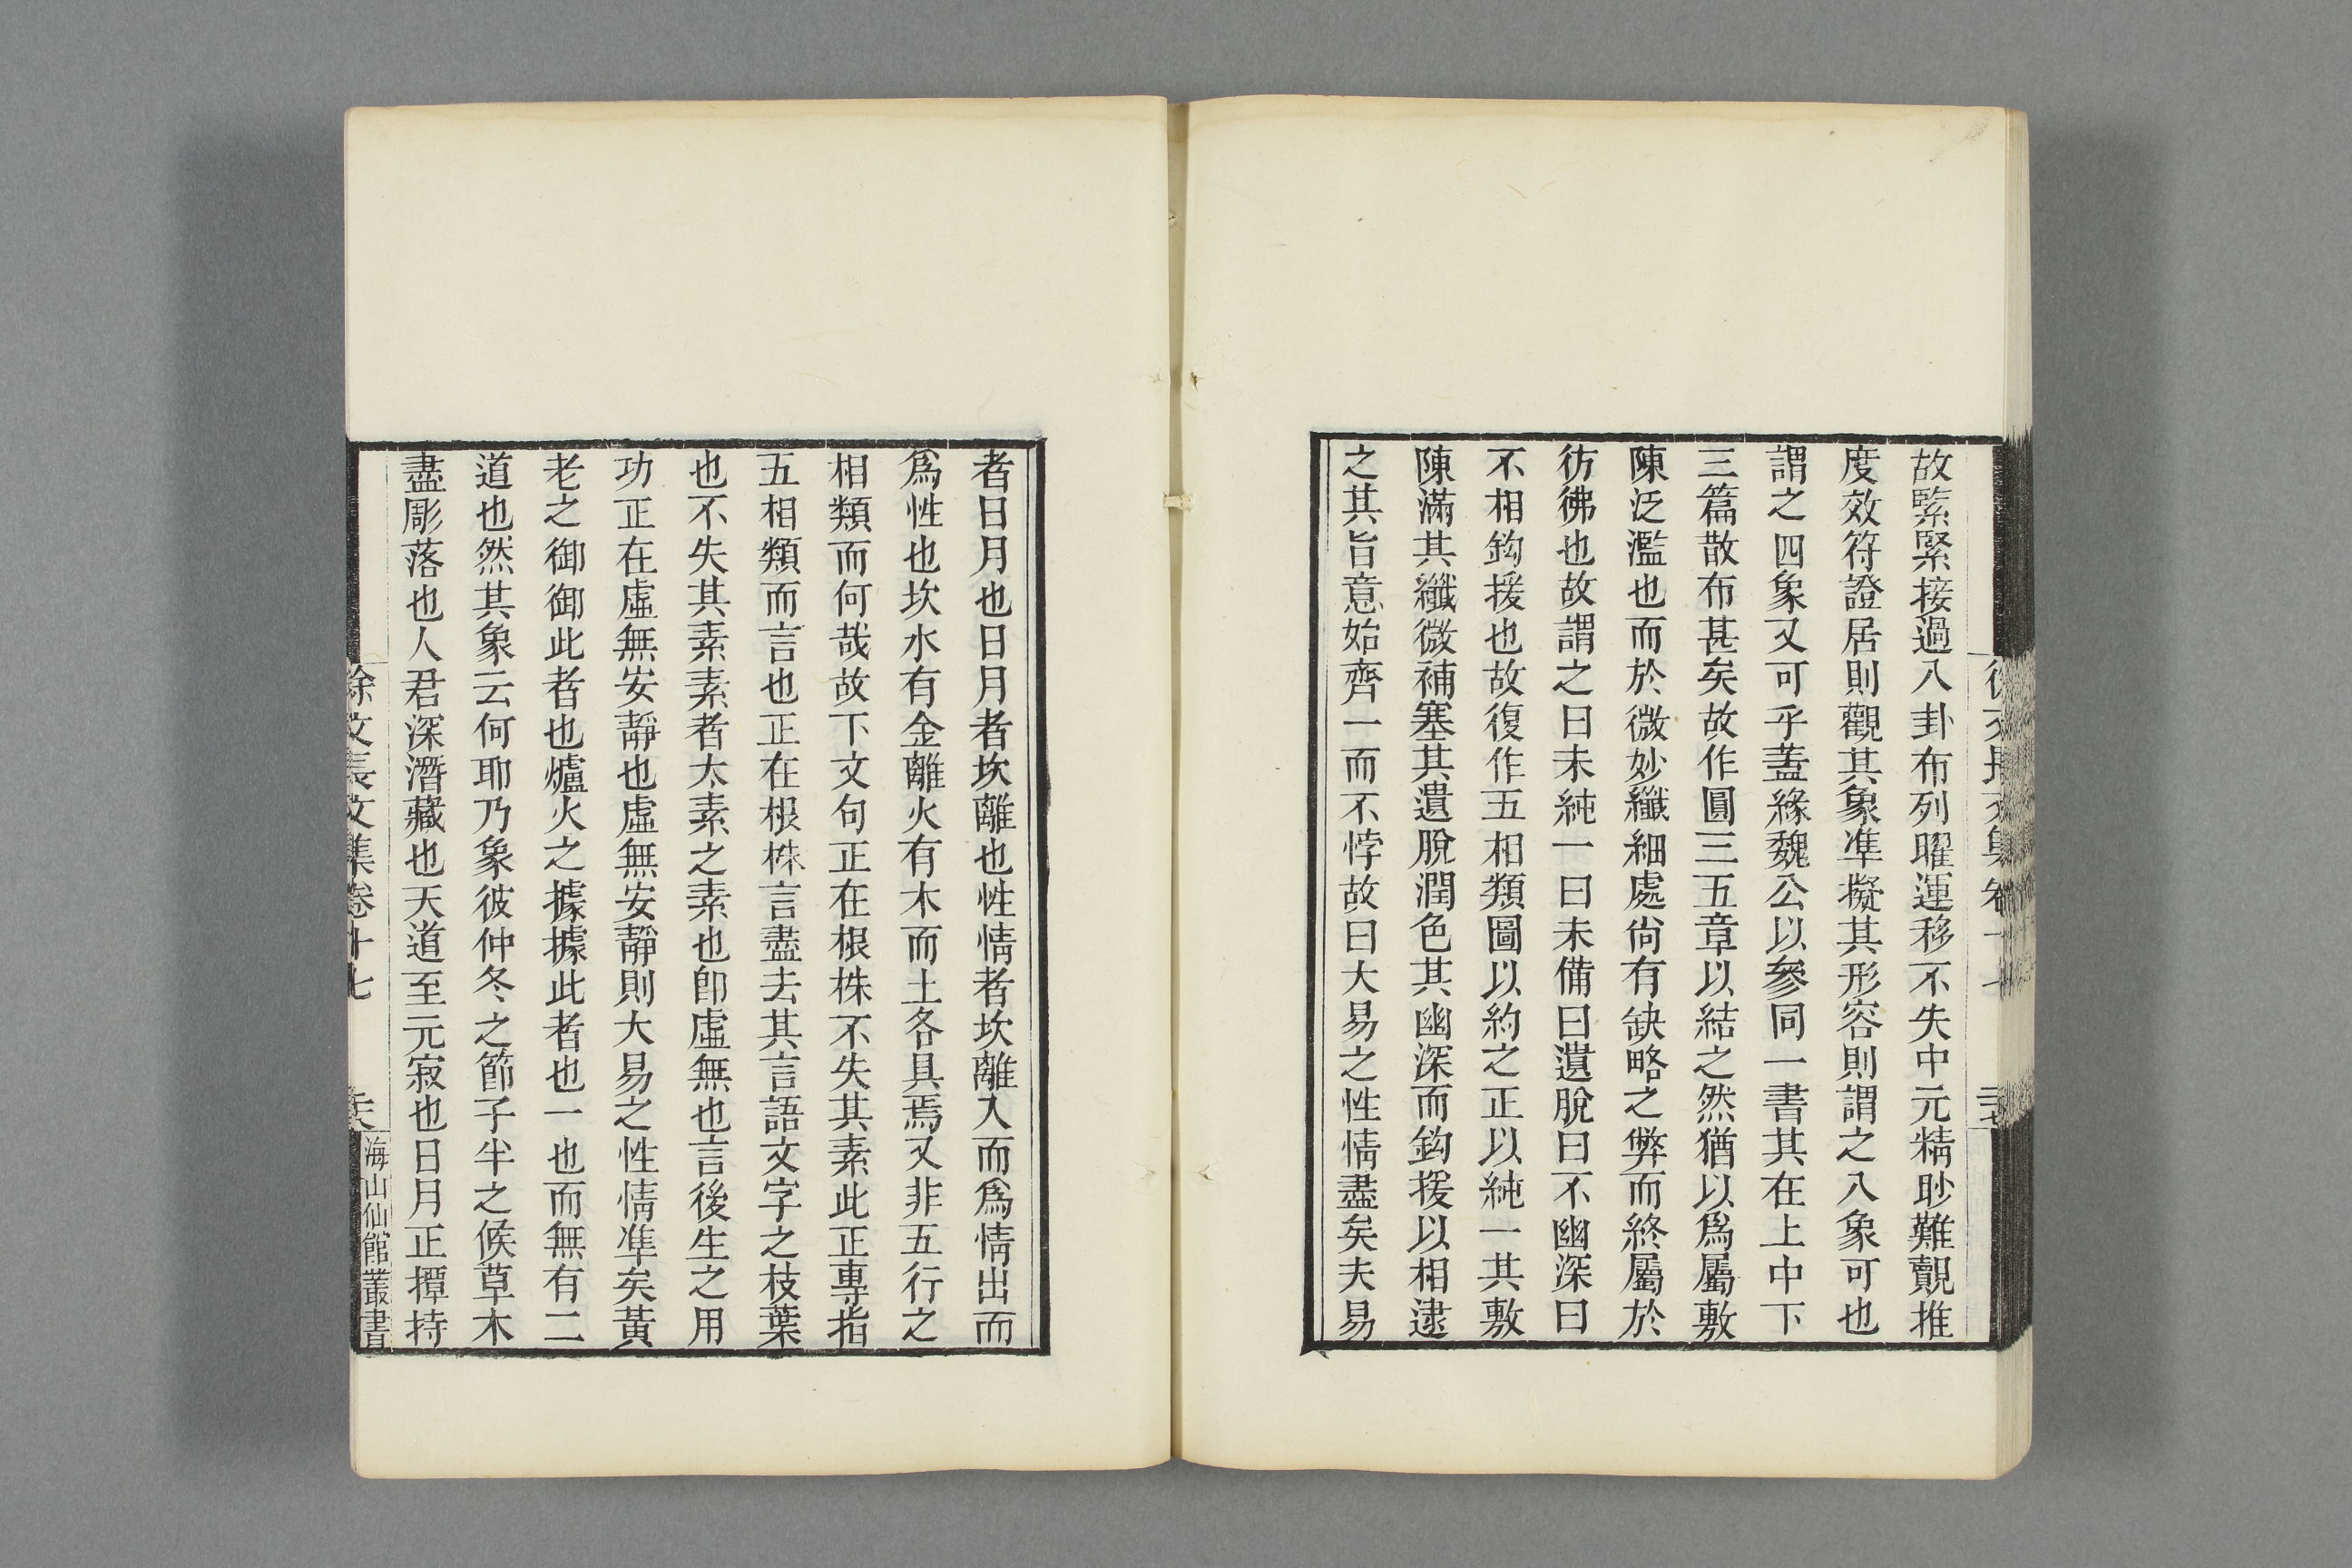 故緊緊接過八卦布列曜運移不失中元精眇難覿推
度效符證居則觀其象凖擬其形容則謂之八象可也
謂之四象又可乎蓋緣魏公以參同一書其在上中下
三篇散布甚矣故作圓三五章以結之然猶以爲屬敷
陳泛濫也而於微妙纖細處尙有缺略之弊而終屬於
彷彿也故謂之曰未純一曰未備曰遺脫曰不幽深曰
不相鈎援也故復作五相類圖以約之正以純一其敷
陳滿其纖微補塞其遺脫潤色其幽深而鈎援以相逮
之其旨意始齊一而不悖故曰大易之性情盡矣夫易
者日月也日月者坎離也性情者坎離入而爲情出而
爲性也坎水有金離火有木而土各具焉又非五行之
相類而何哉故下文句正在根株不失其素此正專指
五相類而言也正在根株言盡去其言語文字之枝葉
也不失其素素者太素之素也卽虛無也言後生之用
功正在虛無安靜也虛無安靜則大易之性情凖矣黃
老之御御此者也爐火之據據此者也一也而無有二
道也然其象云何耶乃象彼仲冬之節子半之候草木
盡彫落也人君深潛藏也天道至元寂也日月正撢持
徐文長文集卷十七
海山仙館叢書